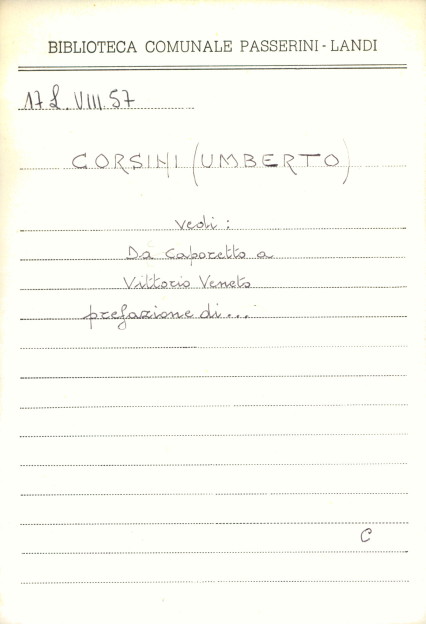 BIBLIOTECA COMUNALE PASSERINI - LANDI
17 L. VIII. 57
CORSINI (UMBERTO)
vedi :
Da Caporetto a
Vittorio Veneto
prefazione di...
C